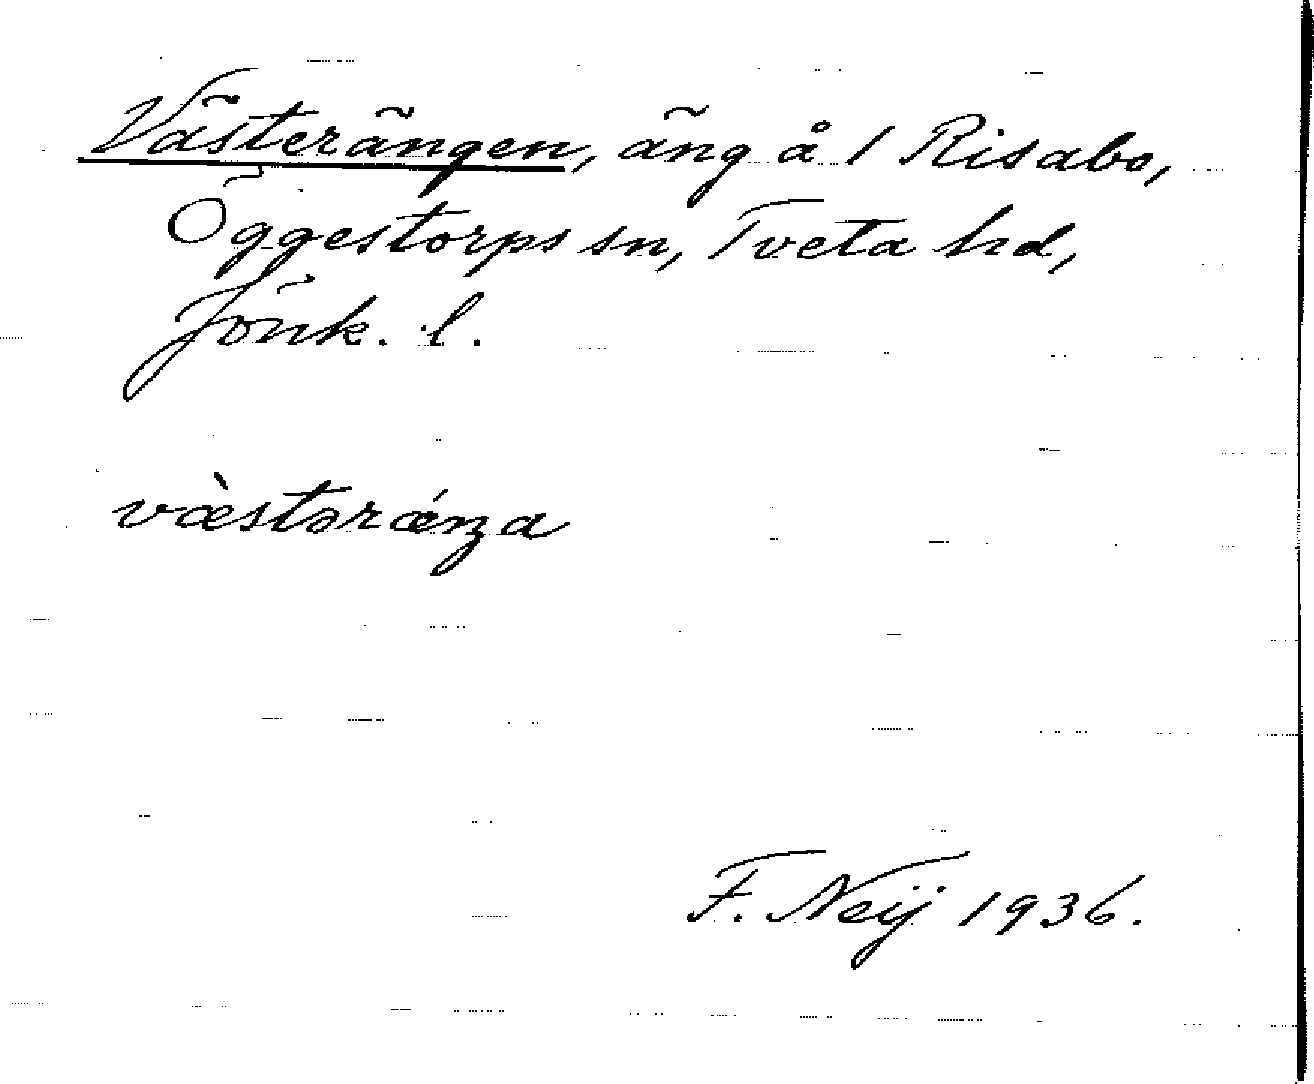 Västerängen, äng å 1 Risabo,
Öggestorps sn, Tveta hd,
Jönk. l.
væ̀stərǽŋa
F. Neij 1936.